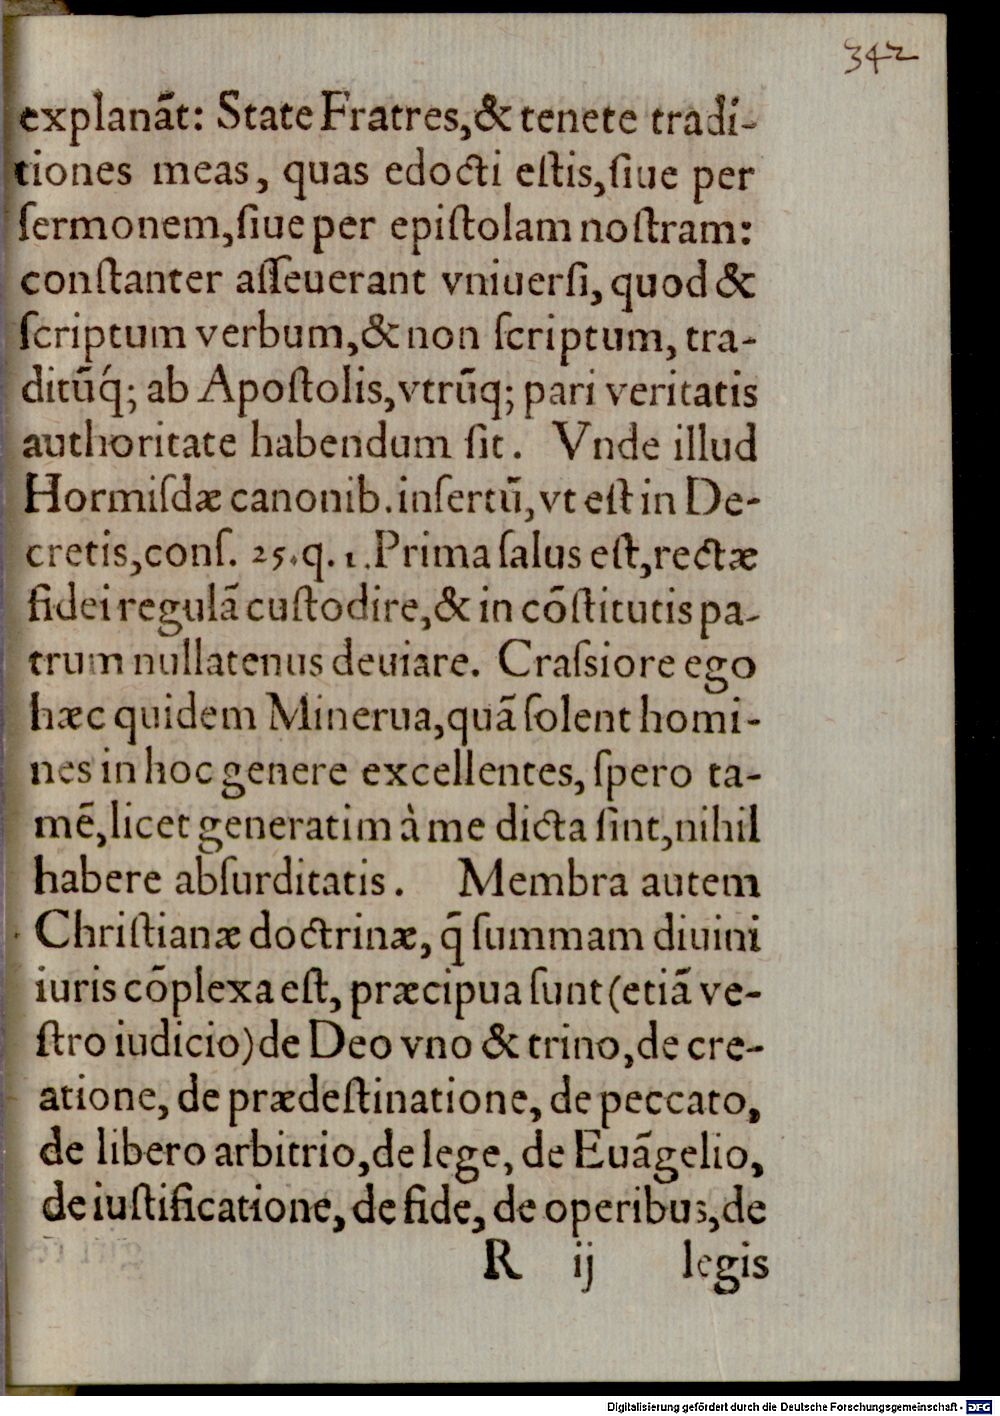 342
explanãt: State Fratres,& tenete tradi-
tiones meas, quas edocti eſtis,ſiue per
ſermonem,ſiue per epiſtolam noſtram:
conſtanter aſſeuerant vniuerſi, quod &
ſcriptum verbum,& non ſcriptum, tra-
ditũq́; ab Apoſtolis,vtrũq; pari veritatis
authoritate habendum ſit. Vnde illud
Hormiſdæ canonib. inſertũ,vt eſt in De-
cretis,conſ. 25.q. 1.Prima ſalus eſt,rectæ
fidei regulã cuſtodire,& in cõſtitutis pa-
trum nullatenus deuiare. Craſsiore ego
hæc quidem Minerua,quã ſolent homi-
nes in hoc genere excellentes, ſpero ta-
mẽ,licet generatim à me dicta ſint,nihil
habere abſurditatis. Membra autem
Chriſtianæ doctrinæ, q̃ ſummam diuini
iuris cõplexa eſt, præcipua ſunt (etiã ve-
ſtro iudicio) de Deo vno & trino,de cre-
atione, de prædeſtinatione, de peccato,
de libero arbitrio,de lege, de Euãgelio,
de iuſtificatione, de fide, de operibus,de
R ij legis
Digitalisierung gefördert durch die Deutsche Forschungsgemeinschaft - DFG